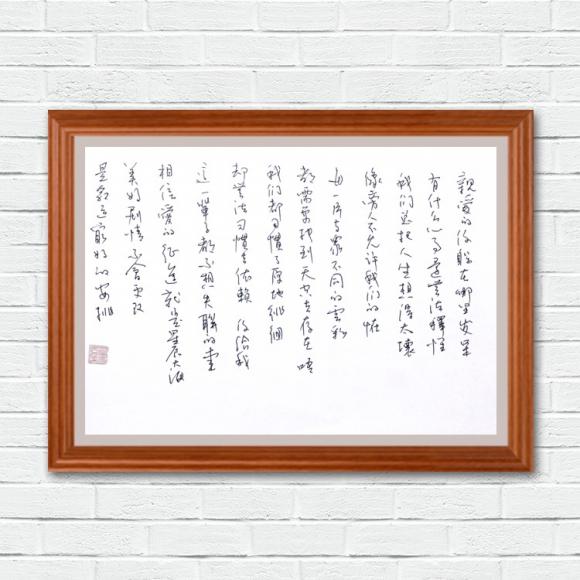 親爱的你躲在哪里发呆
有什么心事還無法釋怀
我们总把人生想得太壞
像旁人不允许我们的怪
每一片与众不同的雲彩
都需要找到天空去存在 唔
我们都习慣了原地徘徊
却無法习慣去依賴 你给我
這一輩子都不想失聯的爱
相信爱的征途就是星辰大海
美好剧情不会更改
是命运最好的安排